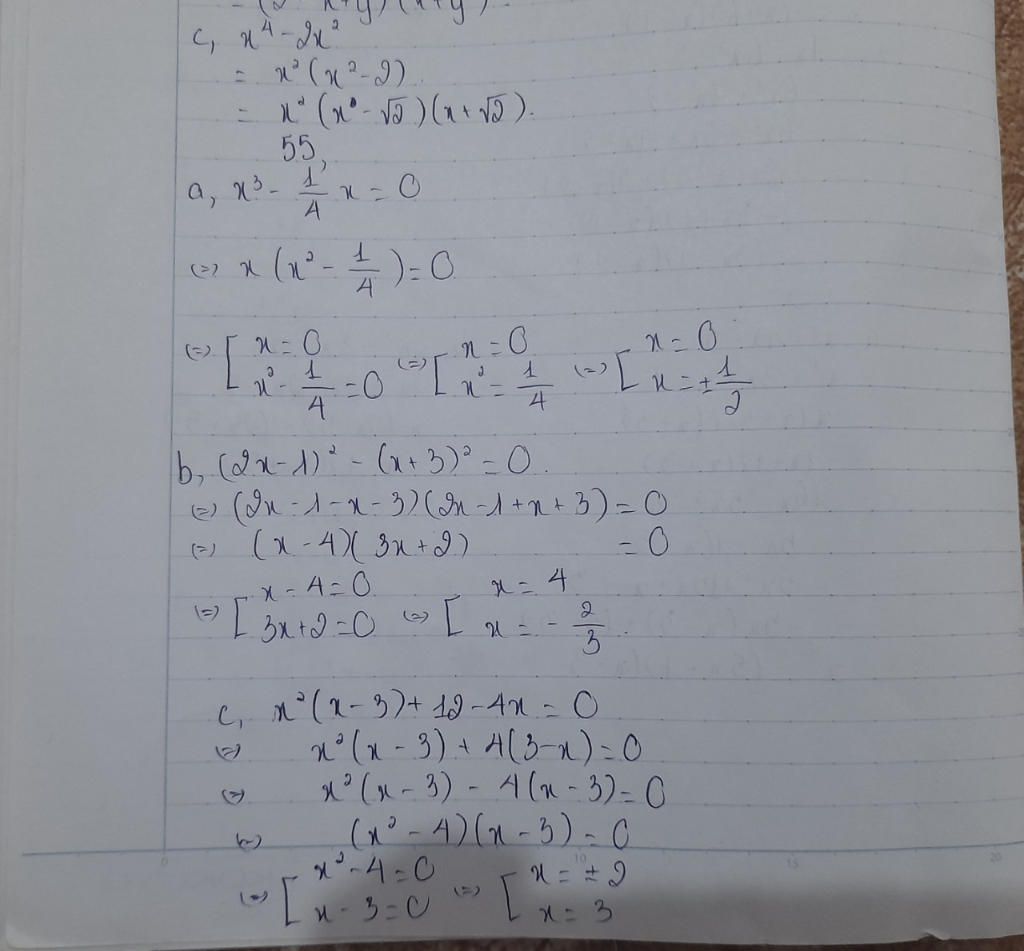 = (2 - x+y)(x+y).
c, x⁴ - 2x²
= x²(x² - 2)
= x²(x - √2)(x + √2).
55,
a, x³ - 1/4 x = 0
(=) x(x² - 1/4) = 0
(=) [ x = 0 (=) [ x = 0 (=) [ x = 0
x² - 1/4 = 0 x² = 1/4 x = ± 1/2
b, (2x - 1)² - (x + 3)² = 0.
(=) (2x - 1 - x - 3)(2x - 1 + x + 3) = 0
(=) (x - 4)(3x + 2) = 0
(=) [ x - 4 = 0 (=) [ x = 4
3x + 2 = 0 x = - 2/3.
c, x²(x - 3) + 12 - 4x = 0
(=) x²(x - 3) + 4(3 - x) = 0
(=) x²(x - 3) - 4(x - 3) = 0
(=) (x² - 4)(x - 3) = 0
(=) [ x² - 4 = 0 (=) [ x = ± 2
x - 3 = 0 x = 3
0 10 15 20